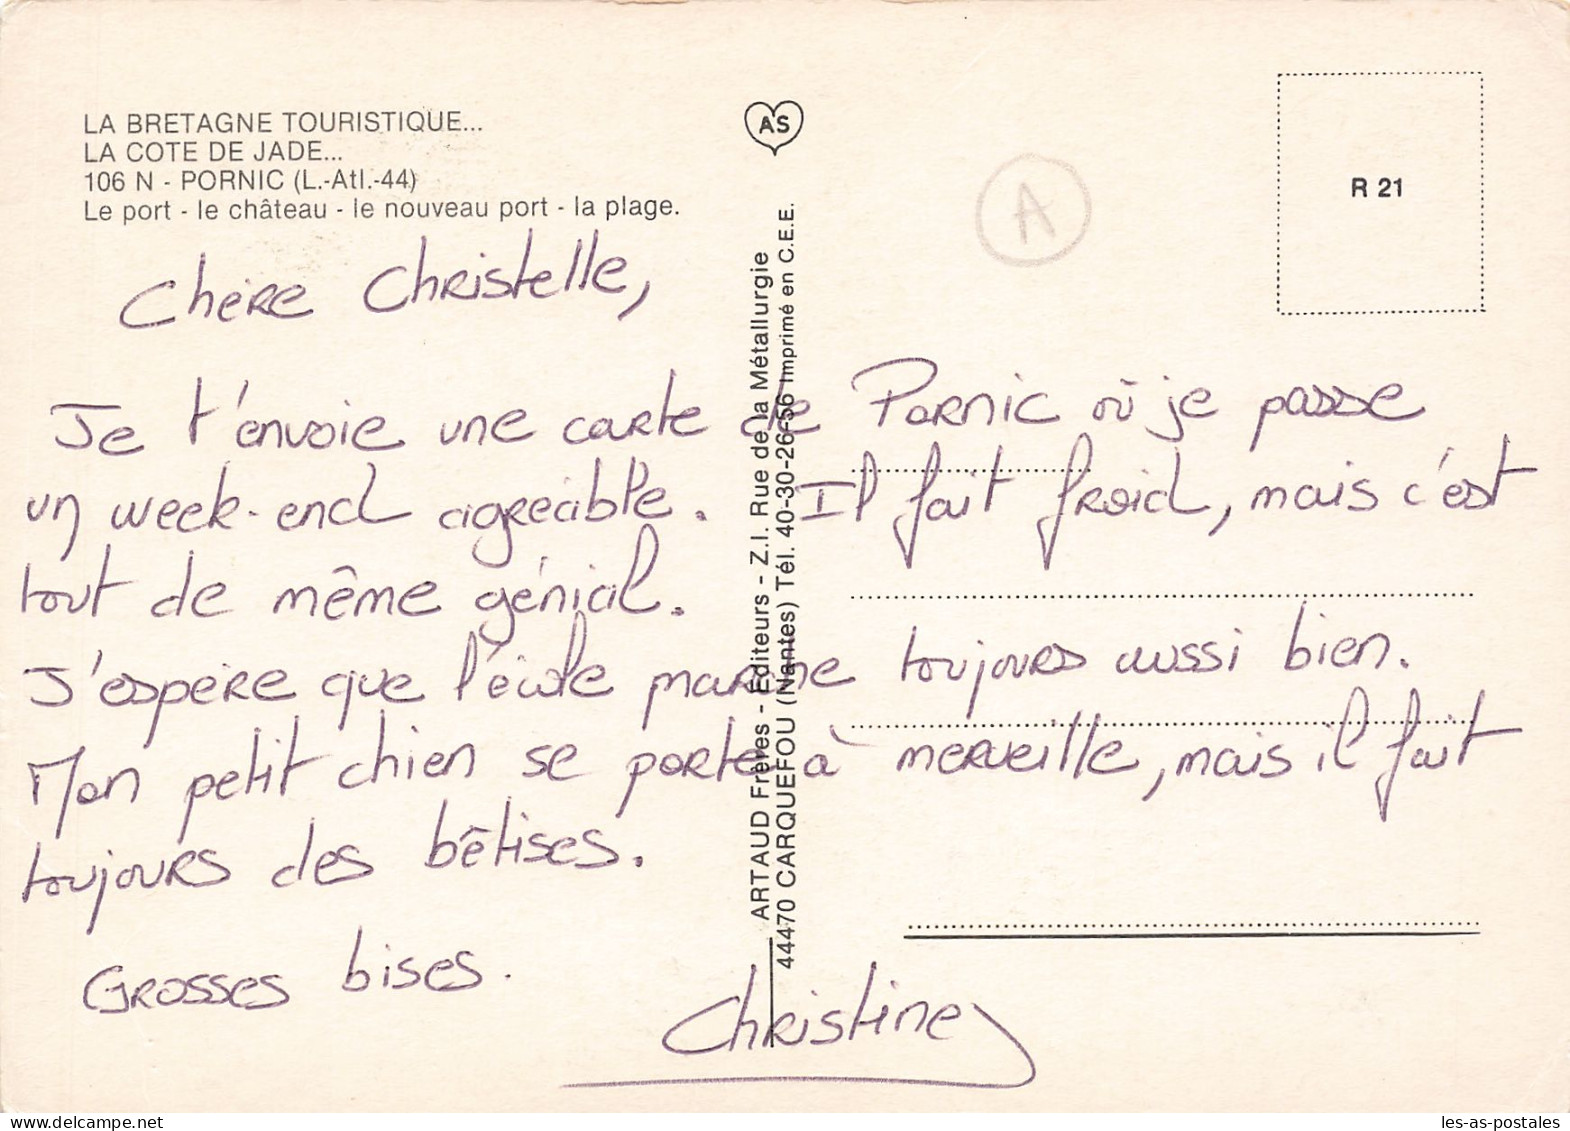 LA BRETAGNE TOURISTIQUE...
LA COTE DE JADE...
106 N - PORNIC (L.-Atl.-44)
Le port - le château - le nouveau port - la plage.
AS
A
R 21
ARTAUD Frères - Éditeurs - Z.I. Rue de la Métallurgie
44470 CARQUEFOU (Nantes) Tél. 40-30-26-56 Imprimé en C.E.E.
Chère Christelle,
Je t'envoie une carte de Pornic où je passe
un week-end agréable. Il fait froid, mais c'est
tout de même génial.
J'espère que l'école marche toujours aussi bien.
Mon petit chien se porte à merveille, mais il fait
toujours des bêtises.
Grosses bises.
Christine
les-as-postales